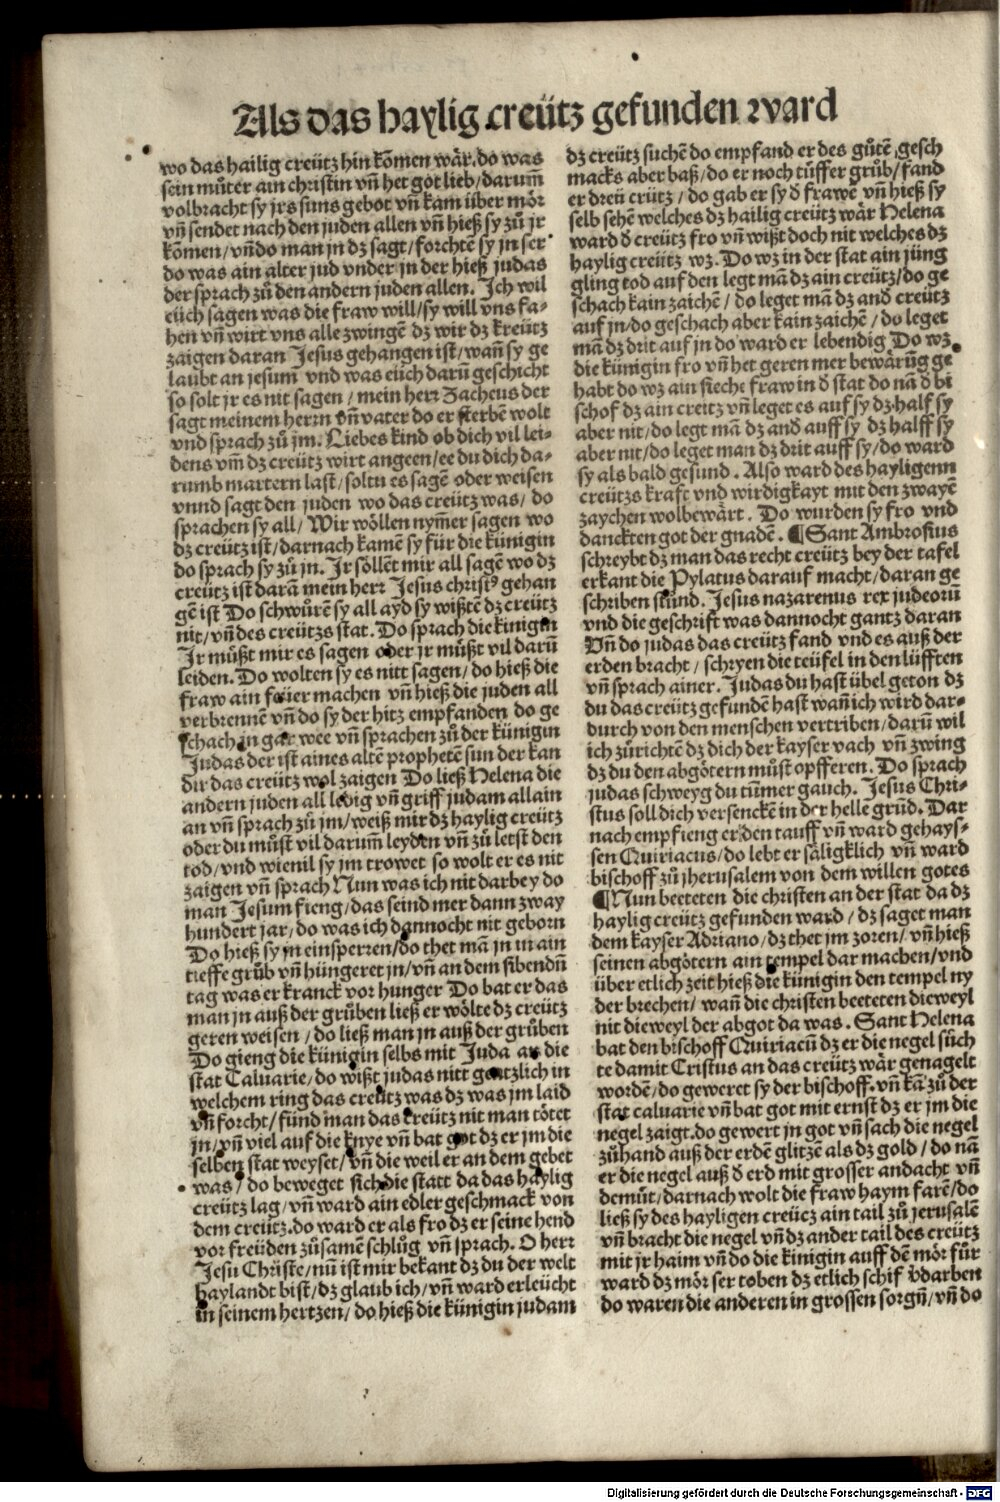 Als das haylig creütz gefunden ward
wo das hailig creütz hin kõmen wår. do was
sein můter ain christin vñ het got lieb/darum̃
volbracht sy jrs suns gebot vñ kam über mör
vñ sendet nach den juden allen vñ hieß sy zů jr
kõmen/vñ do man jn dz sagt/forchtẽ sy jn ser
do was ain alter jud vnder jn der hieß judas
der sprach zů den andern juden allen. Ich wil
eüch sagen was die fraw will/sy will vns fa-
hen vñ wirt vns alle zwingẽ dz wir dz kreütz
zaigen daran Jesus gehangen ist/wañ sy ge
laubt an jesum vnd was eüch darũ geschicht
so solt jr es nit sagen/mein herr Zacheus der
sagt meinem herrn vñ vater do er sterbẽ wolt
vnd sprach zů jm. Liebes kind ob dich vil lei-
dens vm̃ dz creütz wirt angeen/ee du dich da-
rumb martern last/soltu es sagẽ oder weisen
vnnd sagt den juden wo das creütz was/do
sprachen sy all/Wir wöllen nym̃er sagen wo
dz creütz ist/darnach kamẽ sy für die künigin
do sprach sy zů jn. Ir söllẽt mir all sagẽ wo dz
creütz ist darã mein herr Jesus christꝰ gehan
gẽ ist Do schwůrẽ sy all ayd sy wißtẽ dz creütz
nit/vñ des creützs stat. Do sprach die kinigin
Ir můßt mir es sagen oder jr můßt vil darũ
leiden. Do wolten sy es nitt sagen/do hieß die
fraw ain feüer machen vñ hieß die juden all
verbrennẽ vñ do sy der hitz empfanden do ge
schach in gar wee vñ sprachen zů der künigin
Judas der ist aines altẽ prophetẽ sun der kan
dir das creütz wol zaigen Do ließ Helena die
andern juden all ledig vñ griff judam allain
an vñ sprach zů jm/weiß mir dz haylig creütz
oder du můst vil darum̃ leyden vñ zů letst den
tod/vnd wienil sy jm trowet so wolt er es nit
zaigen vñ sprach Nun was ich nit darbey do
man Jesum fieng/das seind mer dann zway
hundert jar/do was ich dannocht nit geborn
Do hieß sy jn einsperren/do thet mã jn in ain
tieffe grůb vñ hüngeret jn/vñ an dem sibendñ
tag was er kranck vor hunger Do bat er das
man jn auß der grůben ließ er wölte dz creütz
geren weisen/do ließ man jn auß der grůben
Do gieng die künigin selbs mit Juda an die
stat Caluarie/do wißt judas nitt gentzlich in
welchem ring das creütz was dz was jm laid
vñ forcht/fünd man das creütz nit man tötet
jn/vñ viel auf die knye vñ bat got dz er jm die
selben stat weyset/vñ die weil er an dem gebet
was/do beweget sich die statt da das haylig
creütz lag/vñ ward ain edler geschmack von
dem creütz.do ward er als fro dz er seine hend
vor freüden zůsamẽ schlůg vñ sprach. O herr
Jesu Christe/nũ ist mir bekant dz du der welt
haylandt bist/dz glaub ich/vñ ward erleücht
in seinem hertzen/do hieß die künigin judam
dz creütz suchẽ do empfand er des gůtẽ gesch
macks aber baß/do er noch tüffer grůb/fand
er dreü crütz/do gab er sy ð frawẽ vñ hieß sy
selb sehẽ welches dz hailig creütz wår Helena
ward ð creütz fro vñ wißt doch nit welches dz
haylig creütz wz. Do wz in der stat ain jüng
gling tod auf den legt mã dz ain creütz/do ge
schach kain zaichẽ/do leget mã dz anð creütz
auf jn/do geschach aber kain zaichẽ/do leget
mã dz drit auf jn do ward er lebendig Do wz
die künigin fro vñ het geren mer bewårũg ge
habt do wz ain sieche fraw in ð stat do nã ð bi
schof dz ain creitz vñ leget es auf sy dz half sy
aber nit/do legt mã dz anð auff sy dz halff sy
aber nit/do leget man dz drit auff sy/do ward
sy als bald gesund. Also ward des hayligenn
creützs kraft vnd wirdigkayt mit den zwayẽ
zaychen wolbewårt. Do wurden sy fro vnd
danckten got der gnadẽ. ¶Sant Ambrosius
schreybt dz man das recht creütz bey der tafel
erkant die Pylatus darauf macht/daran ge
schriben stünd. Jesus nazarenus rex judeorũ
vnd die geschrift was dannocht gantz daran
Vñ do judas das creütz fand vnd es auß der
erden bracht/schryen die teüfel in den lüfften
vñ sprach ainer. Judas du hast übel geton dz
du das creütz gefundẽ hast wañ ich wird dar-
durch von den menschen vertriben/darũ wil
ich zůrichtẽ dz dich der kayser vach vñ zwing
dz du den abgötern můst opfferen. Do sprach
judas schweyg du tum̃er gauch. Jesus Chri-
stus soll dich versenckẽ in der helle grũd. Dar
nach empfieng er den tauff vñ ward gehays-
sen Quiriacus/do lebt er såligklich vñ ward
bischoff zů jherusalem von dem willen gotes
¶Nun beeteten die christen an der stat da dz
haylig creütz gefunden ward/dz saget man
dem kayser Adriano/dz thet jm zoren/vñ hieß
seinen abgötern ain tempel dar machen/vnd
über etlich zeit hieß die künigin den tempel ny
der brechen/wañ die christen beeteten dieweyl
nit dieweyl der abgot da was. Sant Helena
bat den bischoff Quiriacũ dz er die negel sůch
te damit Cristus an das creütz wår genagelt
wordẽ/do geweret sy der bischoff.vñ kã zů der
stat caluarie vñ bat got mit ernst dz er jm die
negel zaigt.do gewert jn got vñ sach die negel
zůhand auß der erdẽ glitzẽ als dz gold/do nã
er die negel auß ð erd mit grosser andacht vñ
demůt/darnach wolt die fraw haym farẽ/do
ließ sy des hayligen creücz ain tail zů jerusalẽ
vñ bracht die negel vñ dz ander tail des creütz
mit jr haim vñ do die kinigin auff dẽ mör fůr
ward dz mör ser toben dz etlich schif v̓darben
do waren die anderen in grossen sorgñ/vñ do
Digitalisierung gefördert durch die Deutsche Forschungsgemeinschaft - DFG